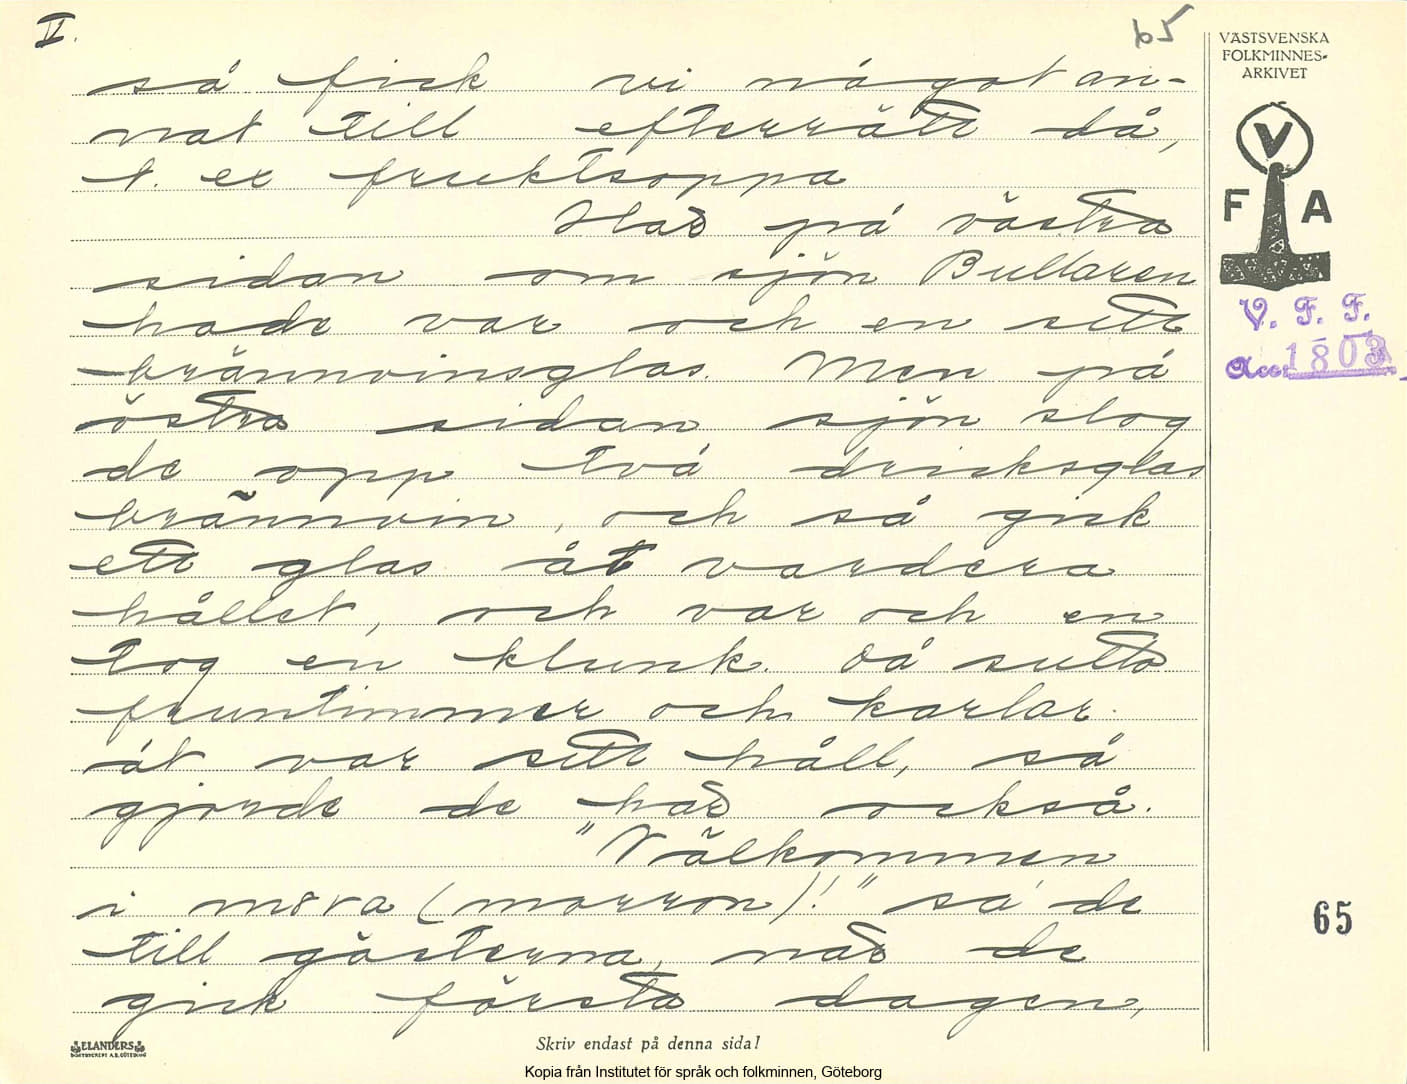 V.
65
VÄSTSVENSKA
FOLKMINNES-
ARKIVET
V
F A
V. F. F.
Acc. 1803
så fick vi något an-
nat till efterrätt då,
t. ex fruktsoppa
Här på västra
sidan om sjön Bullaren
hade var och en sitt
brännvinsglas. Men på
östra sidan sjön slog
de opp två dricksglas
brännvin, och så gick
ett glas åt vardera
hållet, och var och en
tog en klunk. Då sutto
fruntimmer och karlar
åt var sitt håll, så
gjorde de här också.
"Välkommen
i möra (morron)!" sa de
till gästerna, när de
gick första dagen,
65
ELANDERS
BOKTRYCKERI A.B. GÖTEBORG
Skriv endast på denna sida!
Kopia från Institutet för språk och folkminnen, Göteborg